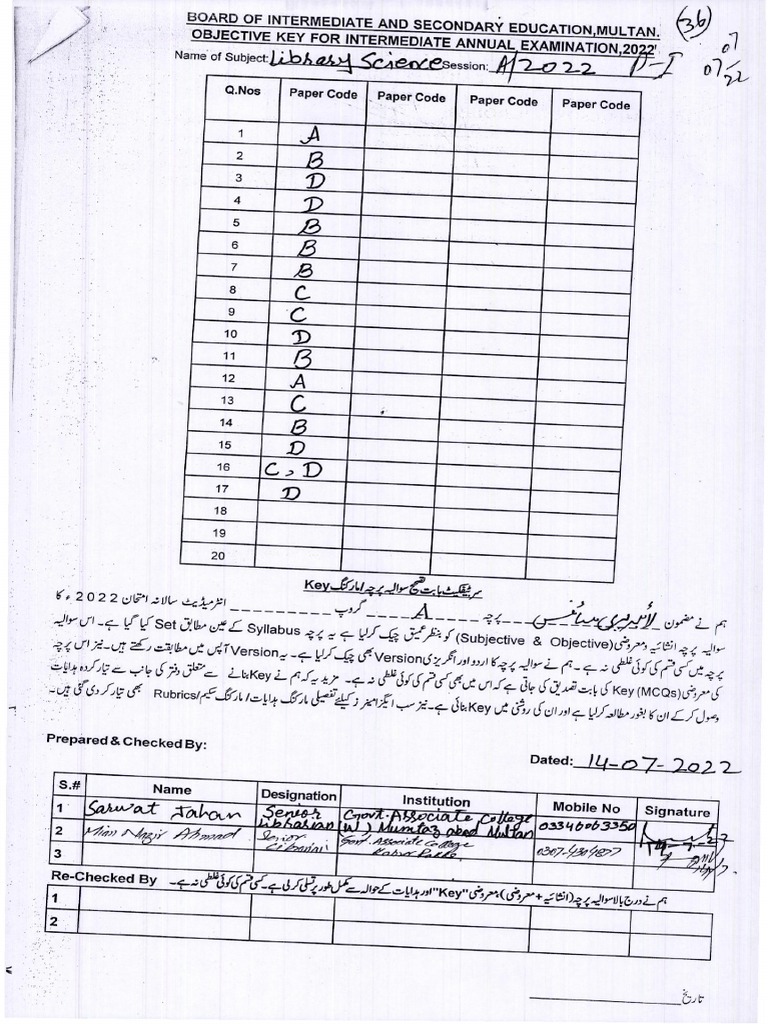 BOARD OF INTERMEDIATE AND SECONDARY EDUCATION,MULTAN.
OBJECTIVE KEY FOR INTERMEDIATE ANNUAL EXAMINATION,2022
36
Name of Subject: Library Science Session: A/2022 P-I
07
07/22
Q.Nos Paper Code Paper Code Paper Code Paper Code
1 A
2 B
3 D
4 D
5 B
6 B
7 B
8 C
9 C
10 D
11 B
12 A
13 C
14 B
15 D
16 C, D
17 D
18
19
20
سرٹیفکیٹ بابت تصحیح سوالیہ پرچہ / مارکنگ Key
ہم نے مضمون لائبریری سائنس پرچہ A گروپ انٹرمیڈیٹ سالانہ امتحان 2022ء کا
سوالیہ پرچہ انشائیہ و معروضی (Subjective & Objective) کو بنظر عمیق چیک کر لیا ہے یہ پرچہ Syllabus کے عین مطابق Set کیا گیا ہے۔ اس سوالیہ
پرچہ میں کسی قسم کی کوئی غلطی نہ ہے۔ ہم نے سوالیہ پرچہ کا اردو اور انگریزی Version بھی چیک کر لیا ہے۔ یہ Version آپس میں مطابقت رکھتے ہیں۔ نیز اس پرچہ
کی معروضی (MCQs) Key کی بابت تصدیق کی جاتی ہے کہ اس میں بھی کسی قسم کی کوئی غلطی نہ ہے۔ مزید یہ کہ ہم نے Key بنانے سے متعلق دفتر کی جانب سے تیار کردہ ہدایات
وصول کر کے ان کا بغور مطالعہ کر لیا ہے اور ان کی روشنی میں Key بنائی ہے۔ نیز سب ایگزامینرز کیلئے تفصیلی مارکنگ ہدایات / مارکنگ سکیم / Rubrics بھی تیار کر دی گئی ہیں۔
Prepared & Checked By:
Dated: 14-07-2022
S.# Name Designation Institution Mobile No Signature
1 Sarwat Jahan Senior Librarian Govt. Associate College (W) Mumtaz abad Multan 03346063350
2 Mian Nazir Ahmad Senior Govt. Associate College 0307-4304877
3
Re-Checked By ہم نے درج بالا سوالیہ پرچہ (انشائیہ + معروضی) / معروضی "Key" اور ہدایات کے حوالہ سے مکمل طور پر تسلی کر لی ہے۔ کسی قسم کی کوئی غلطی نہ ہے۔
1
2
تاریخ